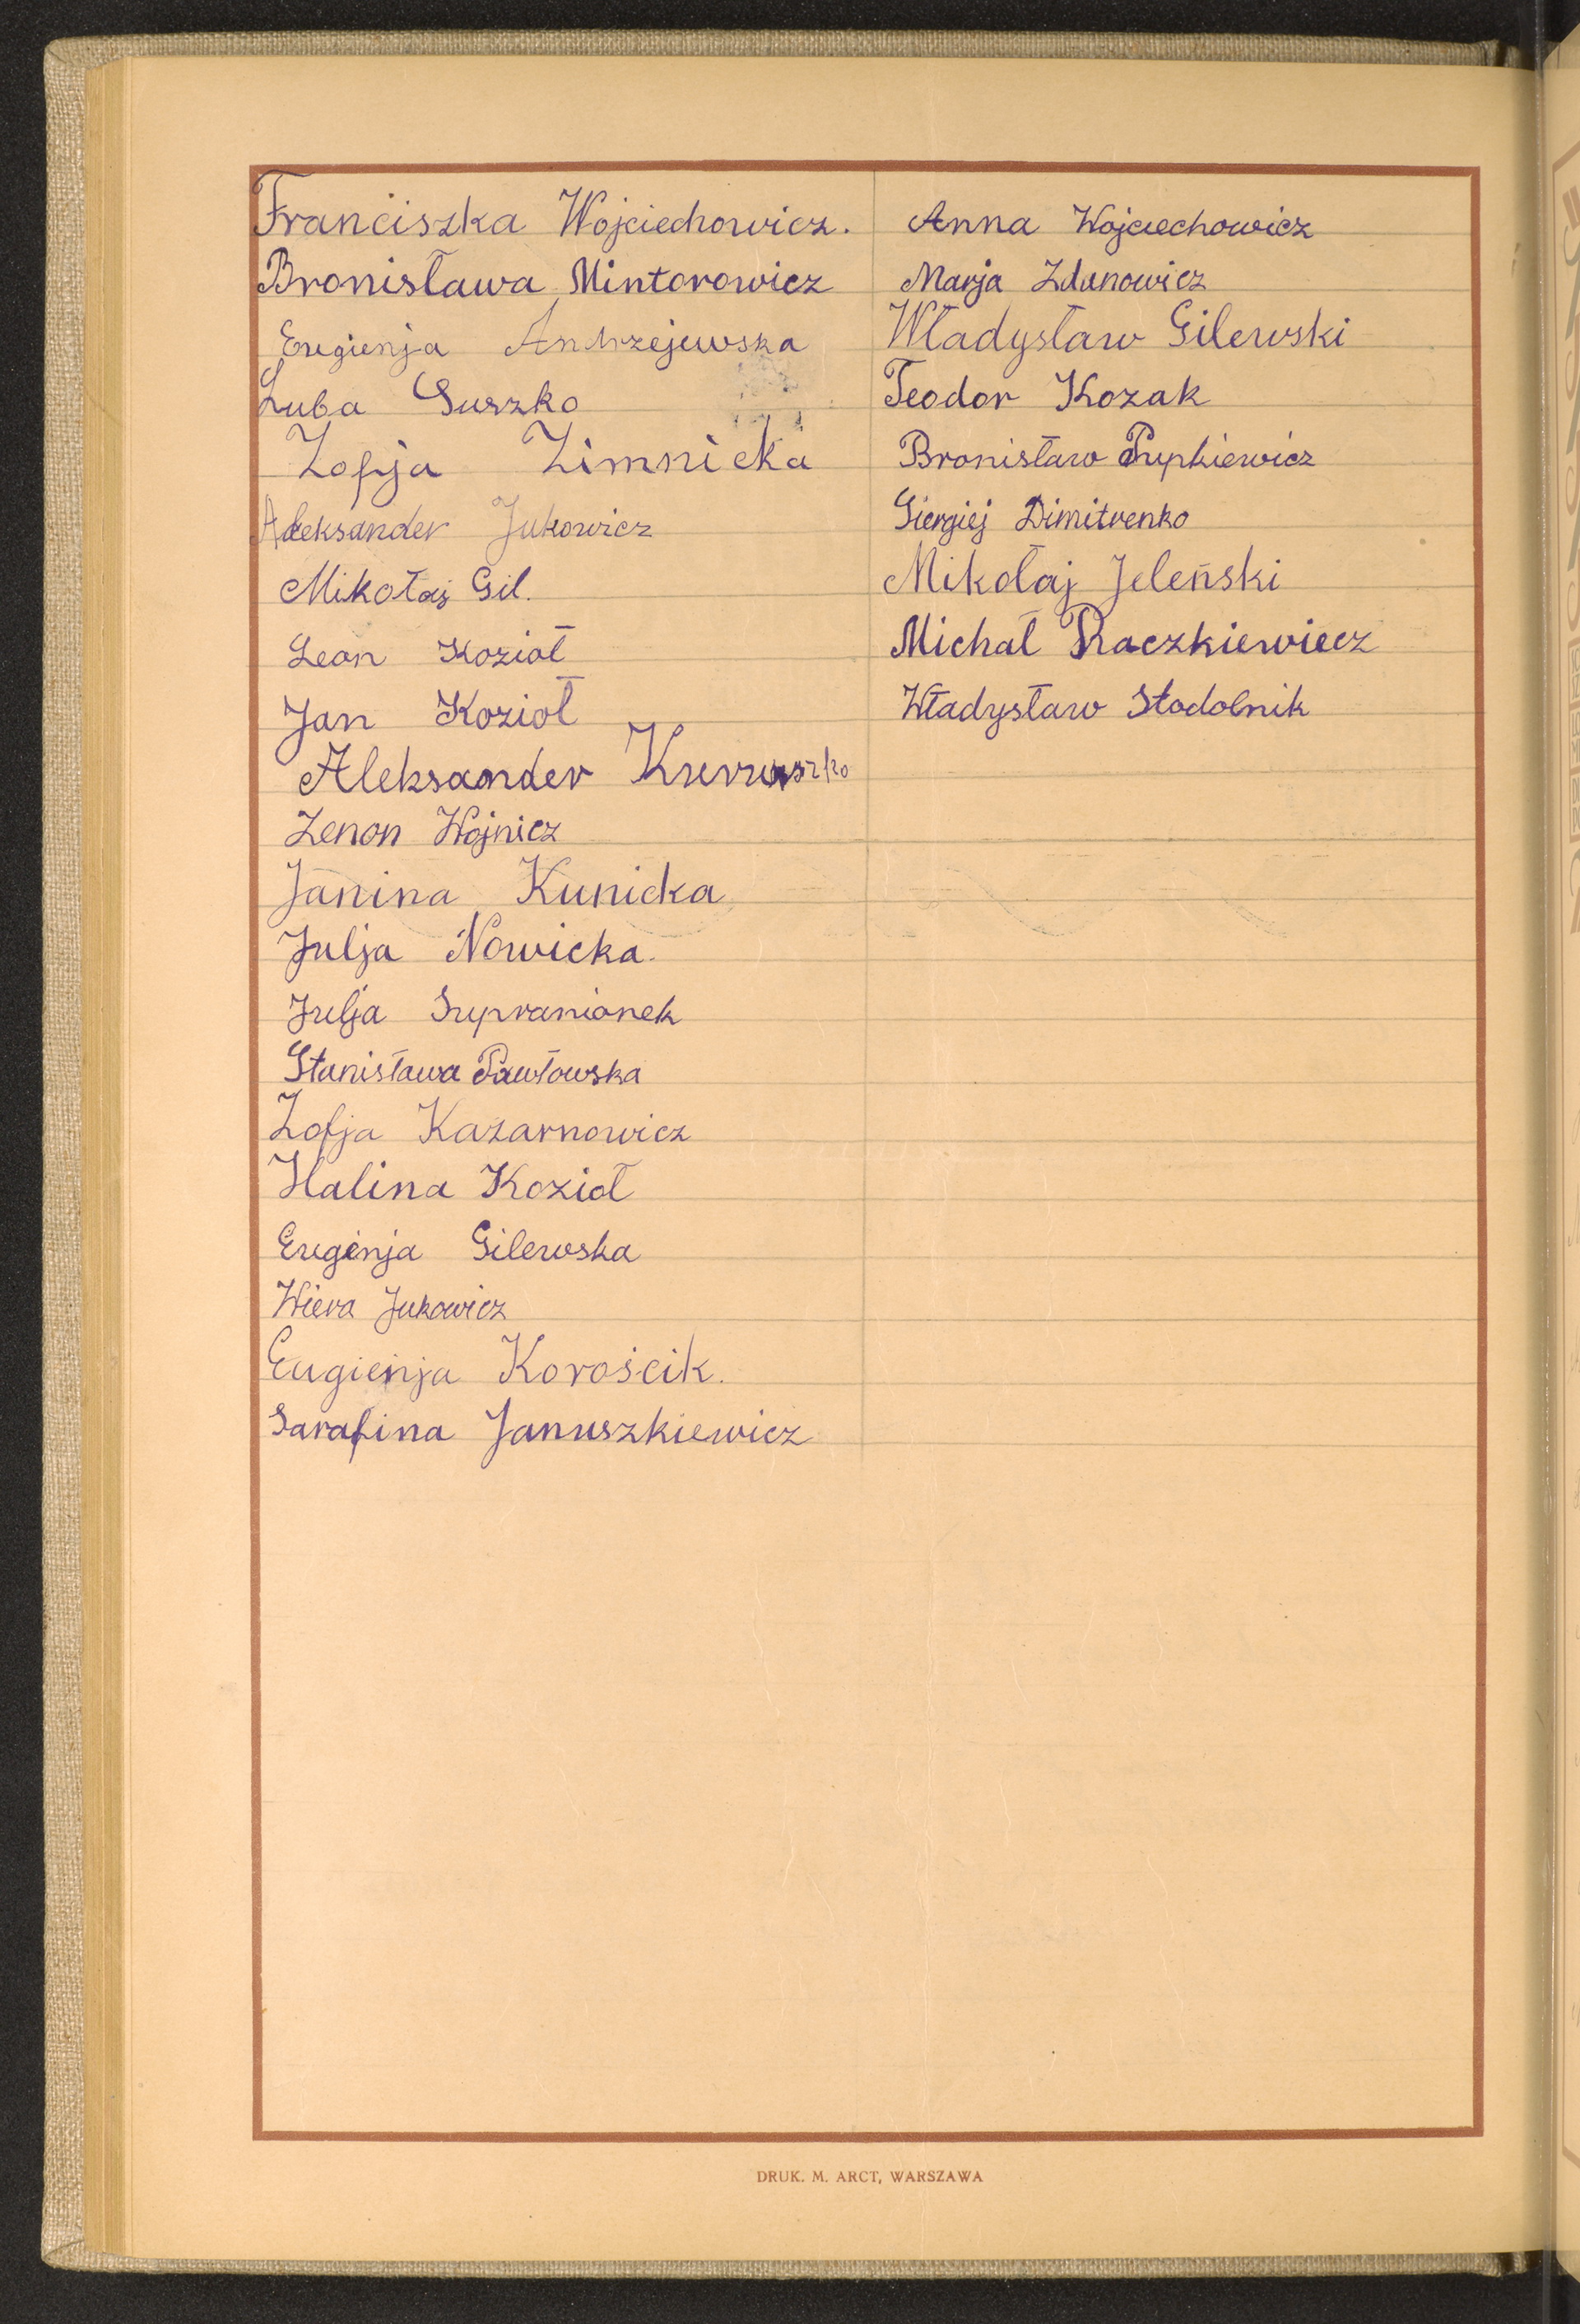 Franciszka Wojciechowicz.
Bronisława Mintorowicz
Eugienja Andrzejewska
Luba Suszko
Zofja Zimnicka
Aleksander Jukowicz
Mikołaj Gil.
Leon Kozioł
Jan Kozioł
Aleksander
Zenon Wojnicz
Janina Kunicka
Julja Nowicka.
Julja Supranionek
Stanisława Pawłowska
Zofja Kazarnowicz
Halina Kozioł
Eugenja Gilewska
Wiera Jukowicz
Eugienja Korościk.
Sarafina Januszkiewicz
Anna Wojciechowicz
Marja Zdanowicz
Władysław Gilewski
Teodor Kozak
Bronisław Pupkiewicz
Siergiej Dimitrenko
Mikołaj Jeleński
Michał Raczkiewiecz
Władysław Stodolnik
DRUK. M. ARCT, WARSZAWA